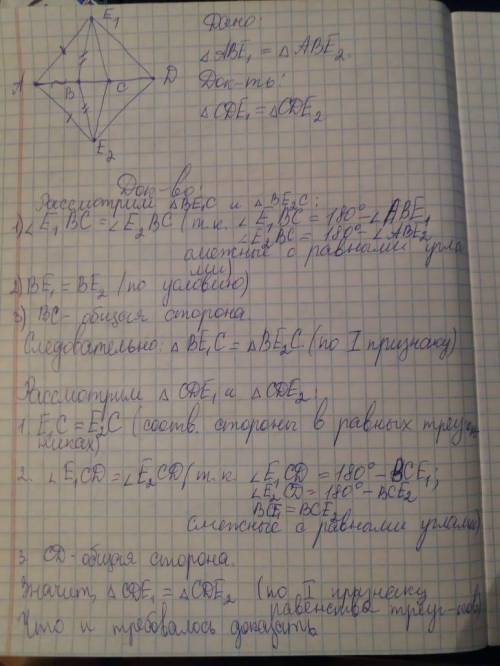 E₁
A B C D
E₂
Дано:
△ABE₁ = △ABE₂.
Док-ть:
△CDE₁ = △CDE₂
Док-во:
Рассмотрим △BE₁C и △BE₂C:
1) ∠E₁BC = ∠E₂BC (т.к. ∠E₁BC = 180° - ∠ABE₁
∠E₂BC = 180° - ∠ABE₂
смежные с равными угла
ми)
2) BE₁ = BE₂ (по условию)
3) BC - общая сторона.
Следовательно: △BE₁C = △BE₂C (по I признаку)
Рассмотрим △CDE₁ и △CDE₂:
1. E₁C = E₂C (соотв. стороны в равных треуг
никах)
2. ∠E₁CD = ∠E₂CD (т.к. ∠E₁CD = 180° - BCE₁;
∠E₂CD = 180° - BCE₂
BCE₁ = BCE₂
смежные с равными углами)
3. CD - общая сторона.
Значит, △CDE₁ = △CDE₂ (по I признаку
равенства треуг-ков)
Что и требовалось доказать.